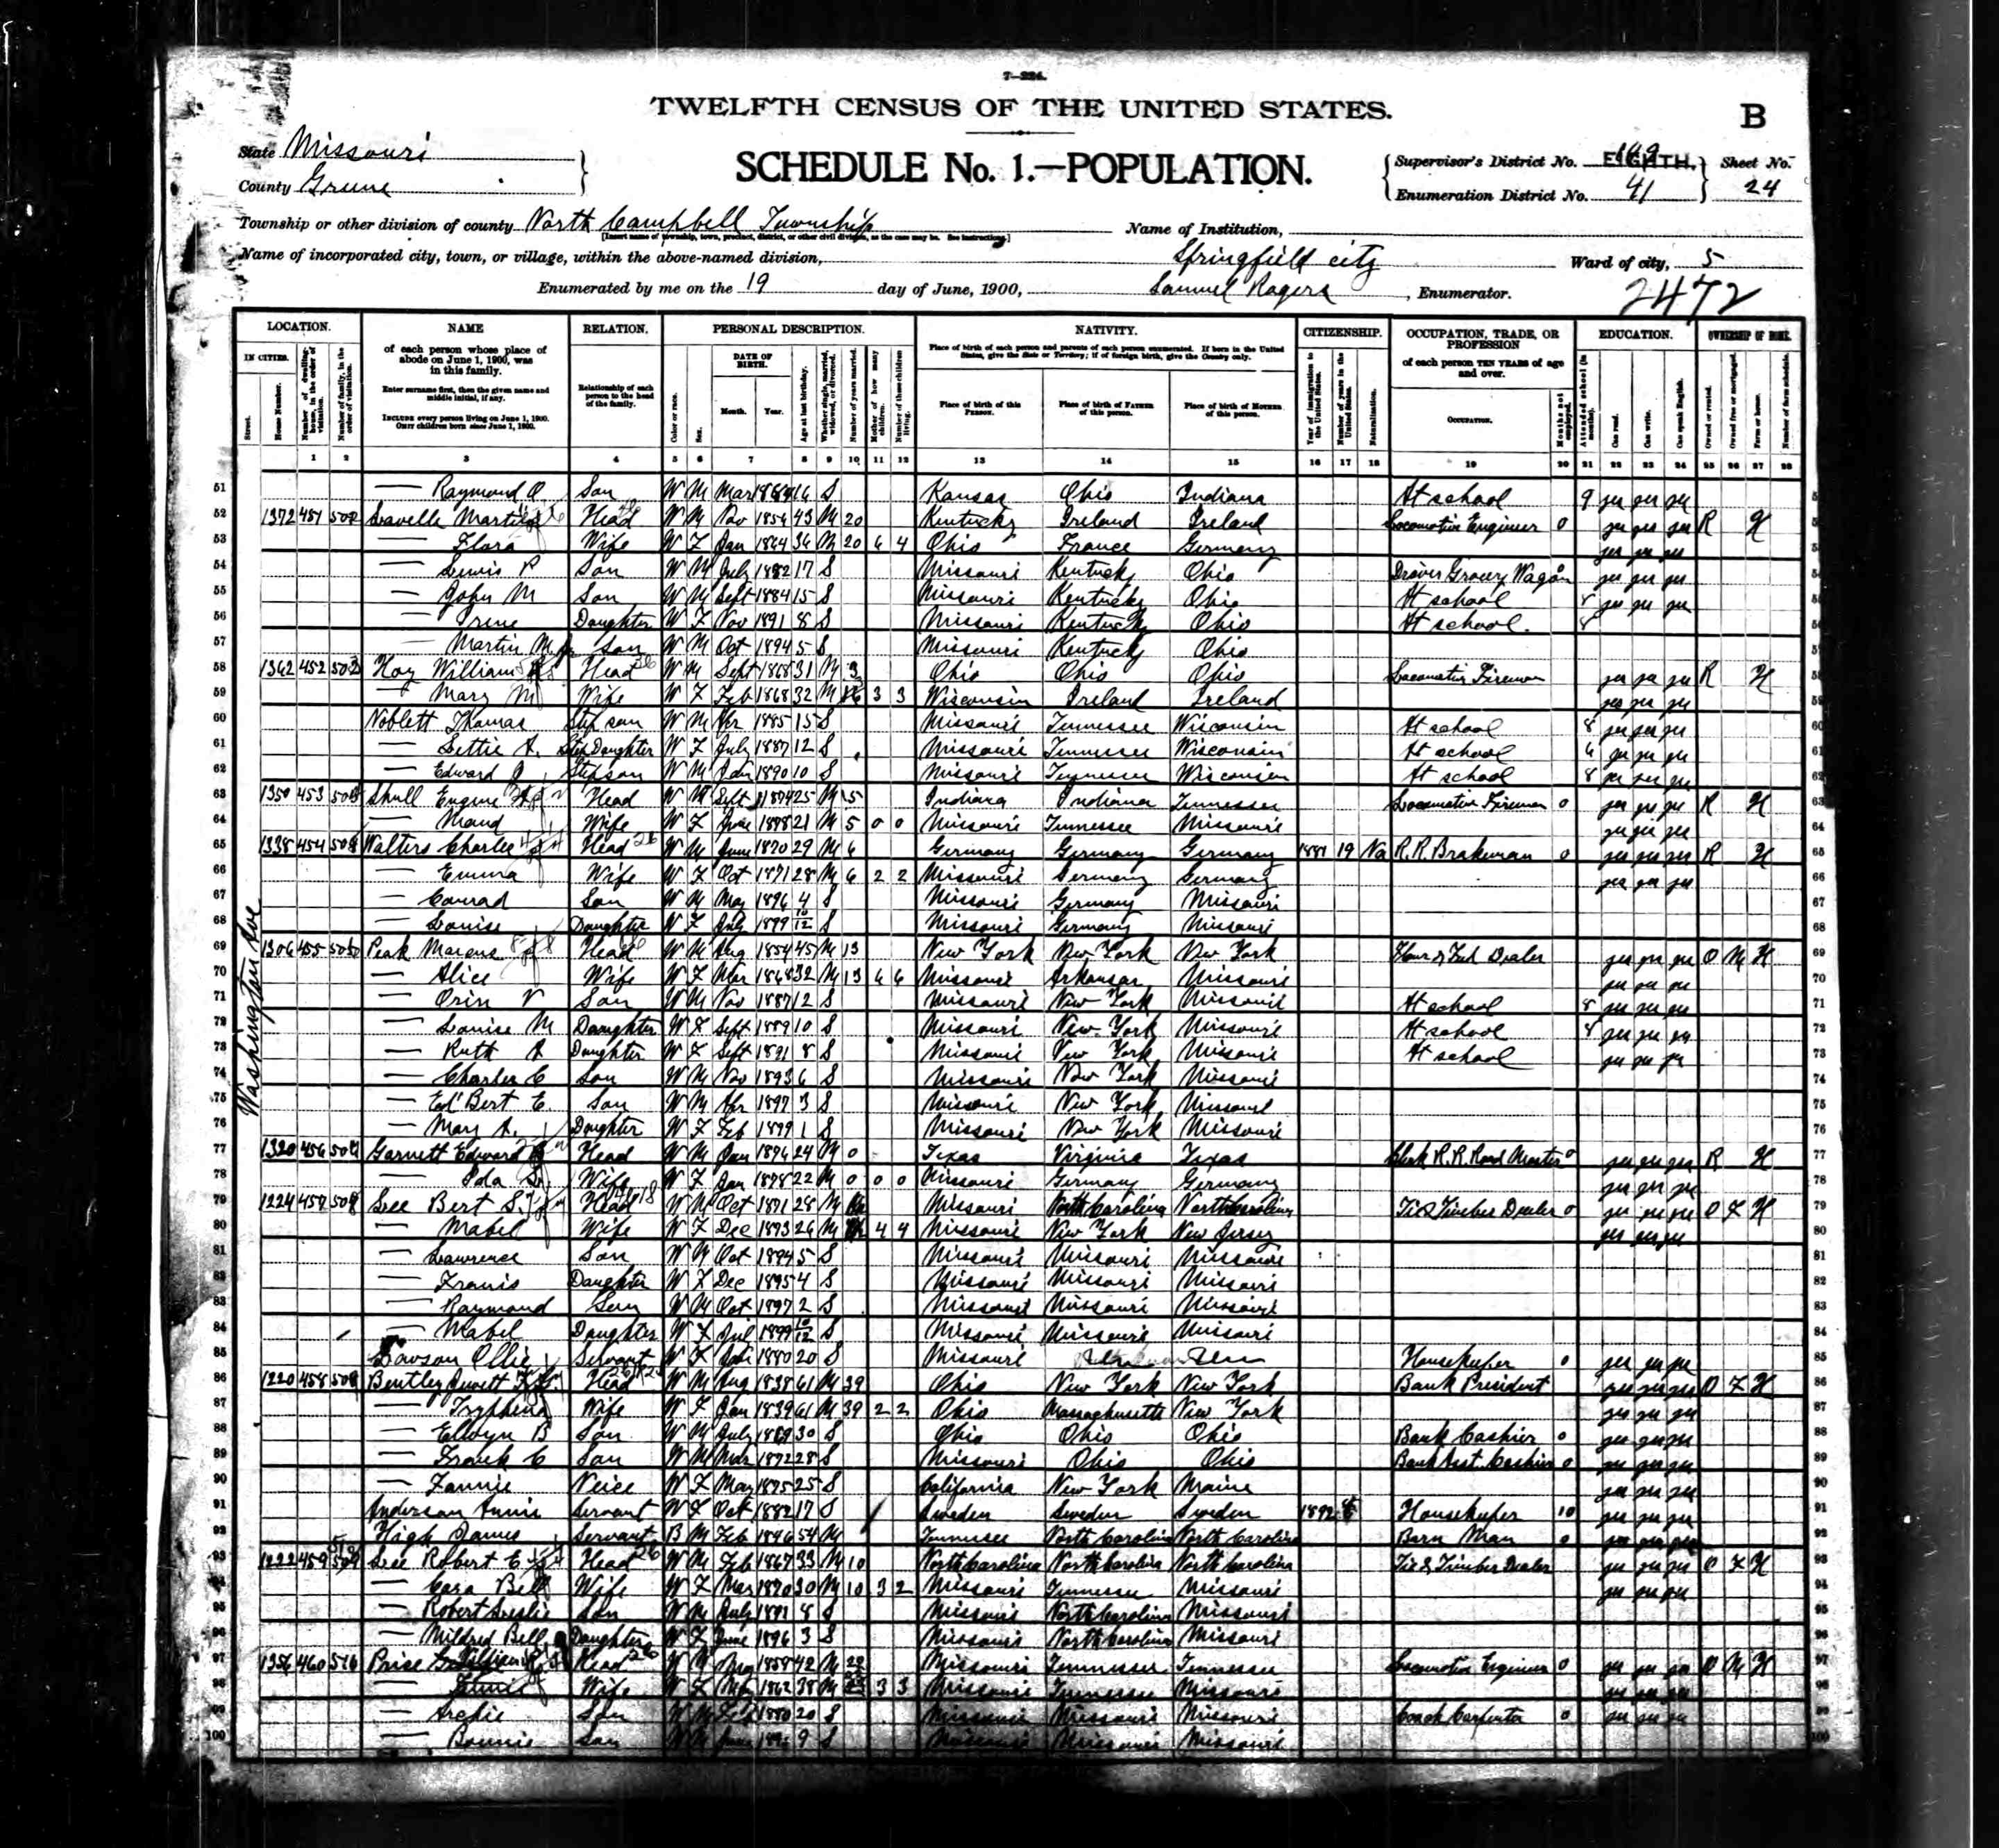 7-224.
TWELFTH CENSUS OF THE UNITED STATES.
B
State Missouri
County Greene
SCHEDULE No. 1.—POPULATION.
Supervisor's District No. EIGHTH. Sheet No.
Enumeration District No. 41 24
Township or other division of county North Campbell Township Name of Institution,
[Insert name of township, town, precinct, district, or other civil division, as the case may be. See instructions.]
Name of incorporated city, town, or village, within the above-named division, Springfield city Ward of city, 5
Enumerated by me on the 19 day of June, 1900, Samuel Rogers, Enumerator. 2472
LOCATION. NAME RELATION. PERSONAL DESCRIPTION. NATIVITY. CITIZENSHIP. OCCUPATION, TRADE, OR PROFESSION EDUCATION. OWNERSHIP OF HOME.
IN CITIES. of each person whose place of abode on June 1, 1900, was in this family.
Enter surname first, then the given name and middle initial, if any.
INCLUDE every person living on June 1, 1900. OMIT children born since June 1, 1900.
Relationship of each person to the head of the family.
DATE OF BIRTH. Month. Year.
Place of birth of each person and parents of each person enumerated. If born in the United States, give the State or Territory; if of foreign birth, give the Country only.
Place of birth of this PERSON. Place of birth of FATHER of this person. Place of birth of MOTHER of this person.
of each person TEN YEARS of age and over.
OCCUPATION.
1 2 3 4 5 6 7 8 9 10 11 12 13 14 15 16 17 18 19 20 21 22 23 24 25 26 27 28
Washington Ave
51 — Raymond O Son W M Mar 16 S Kansas Ohio Indiana At school 9 yes yes yes
52 1372 451 Lavelle Martin Head W M Nov 1856 43 M 20 Kentucky Ireland Ireland Locomotive Engineer 0 yes yes yes R H
53 — Flora Wife W F Jan 1864 36 M 20 6 4 Ohio France Germany yes yes yes
54 — Lewis P Son W M July 1882 17 S Missouri Kentucky Ohio Driver Grocery Wagon yes yes yes
55 — John M Son W M Sept 1884 15 S Missouri Kentucky Ohio At school 8 yes yes yes
56 — Irene Daughter W F Nov 1891 8 S Missouri Kentucky Ohio At school 8
57 — Martin M Jr Son W M Oct 1894 5 S Missouri Kentucky Ohio
58 1362 452 Hoy William Head W M Sept 1868 31 M 3 Ohio Ohio Ohio Locomotive Fireman yes yes yes R H
59 — Mary M Wife W F Feb 1868 32 M 3 3 Wisconsin Ireland Ireland yes yes yes
60 Noblett Thomas Step son W M Apr 1885 15 S Missouri Tennessee Wisconsin At school 8 yes yes yes
61 — Lettie A. Step Daughter W F July 1887 12 S Missouri Tennessee Wisconsin At school 6 yes yes yes
62 — Edward J Stepson W M Jan 1890 10 S Missouri Tennessee Wisconsin At school 8 yes yes yes
63 1350 453 Shull Eugene Head W M Sept 1874 25 M 5 Indiana Indiana Tennessee Locomotive Fireman 0 yes yes yes R H
64 — Maud Wife W F June 1878 21 M 5 0 0 Missouri Tennessee Missouri yes yes yes
65 1338 454 Walters Charlie Head W M June 1870 29 M 6 Germany Germany Germany 1881 19 Na R.R. Brakeman 0 yes yes yes R H
66 — Emma Wife W F Oct 1871 28 M 6 2 2 Missouri Germany Germany yes yes yes
67 — Conrad Son W M May 1896 4 S Missouri Germany Missouri
68 — Louise Daughter W F July 1899 10/12 S Missouri Germany Missouri
69 1306 455 Peak Marcus Head W M Aug 1854 45 M 13 New York New York New York Flour & Feed Dealer yes yes yes O M H
70 — Alice Wife W F Mar 1868 32 M 13 6 6 Missouri Arkansas Missouri yes yes yes
71 — Orin V Son W M Nov 1887 12 S Missouri New York Missouri At school 8 yes yes yes
72 — Louise M Daughter W F Sept 1889 10 S Missouri New York Missouri At school 8 yes yes yes
73 — Ruth A Daughter W F Sept 1891 8 S Missouri New York Missouri At school yes yes yes
74 — Charles C Son W M Nov 1893 6 S Missouri New York Missouri
75 — Ed Bert E. Son W M Apr 1897 3 S Missouri New York Missouri
76 — Mary A. Daughter W F Feb 1899 1 S Missouri New York Missouri
77 1320 456 Garnett Edward Head W M Jan 1876 24 M 0 Texas Virginia Texas Clerk R.R. Road Master 0 yes yes yes R H
78 — Ida Wife W F Jan 1878 22 M 0 0 0 Missouri Germany Germany yes yes yes
79 1224 Lee Bert S Head W M Oct 1871 28 M Missouri North Carolina North Carolina Tie & Timber Dealer 0 yes yes yes O F H
80 — Mabel Wife W F Dec 1873 26 M 4 4 Missouri New York New Jersey yes yes yes
81 — Lawrence Son W M Oct 1894 5 S Missouri Missouri Missouri
82 — Francis Daughter W F Dec 1895 4 S Missouri Missouri Missouri
83 — Raymond Son W M Oct 1897 2 S Missouri Missouri Missouri
84 — Mabel Daughter W F Jul 1899 10/12 S Missouri Missouri Missouri
85 Lawson Ollie Servant W F 1880 20 S Missouri Housekeeper 0 yes yes yes
86 1220 458 Bentley Jewett Head W M Aug 1838 61 M 39 Ohio New York New York Bank President yes yes yes O F H
87 — Tryphena Wife W F Jan 1839 61 M 39 2 2 Ohio Massachusetts New York yes yes yes
88 — Elwyn B Son W M July 1869 30 S Ohio Ohio Ohio Bank Cashier 0 yes yes yes
89 — Frank C Son W M Mar 1872 28 S Missouri Ohio Ohio Bank Asst. Cashier 0 yes yes yes
90 — Fannie Neice W F May 1875 25 S California New York Maine yes yes yes
91 Anderson Annie Servant W F Oct 1882 17 S Sweden Sweden Sweden 1892 Housekeeper 10 yes yes yes
92 High James Servant B M Feb 1846 54 M Tennessee North Carolina North Carolina Barn Man 0 yes yes yes
93 1222 459 Lee Robert E Head W M Feb 1867 33 M 10 North Carolina North Carolina North Carolina Tie & Timber Dealer yes yes yes O F H
94 — Cora Bell Wife W F Mar 1870 30 M 10 3 2 Missouri Tennessee Missouri yes yes yes
95 — Robert Leslie Son W M July 1891 8 S Missouri North Carolina Missouri
96 — Mildred Bell Daughter W F June 1896 3 S Missouri North Carolina Missouri
97 1356 460 Price William Head W M May 1858 42 M 22 Missouri Tennessee Tennessee Locomotive Engineer 0 yes yes yes O M H
98 — Wife W F 1862 38 M 3 3 Missouri Tennessee Missouri yes yes yes
99 — Archie Son W M Feb 1880 20 S Missouri Missouri Missouri Coach Carpenter 0 yes yes yes
100 — Bonnie Son W M June 9 S Missouri Missouri Missouri